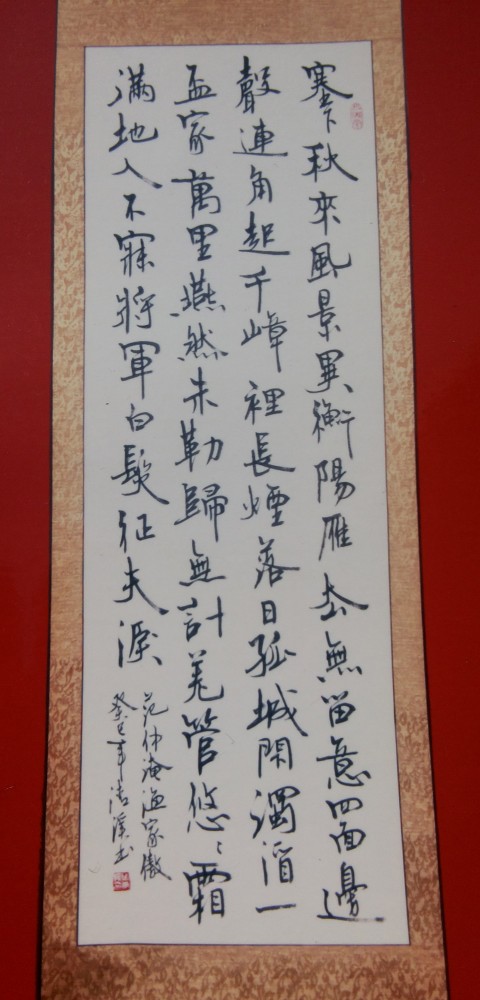 塞下秋來風景異衡陽雁去無留意四面邊
聲連角起千嶂裡長煙落日孤城閉濁酒一
盃家萬里燕然未勒歸無計羌管悠〻霜
滿地人不寐將軍白髮征夫淚
范仲淹漁家傲
癸巳年清溪书